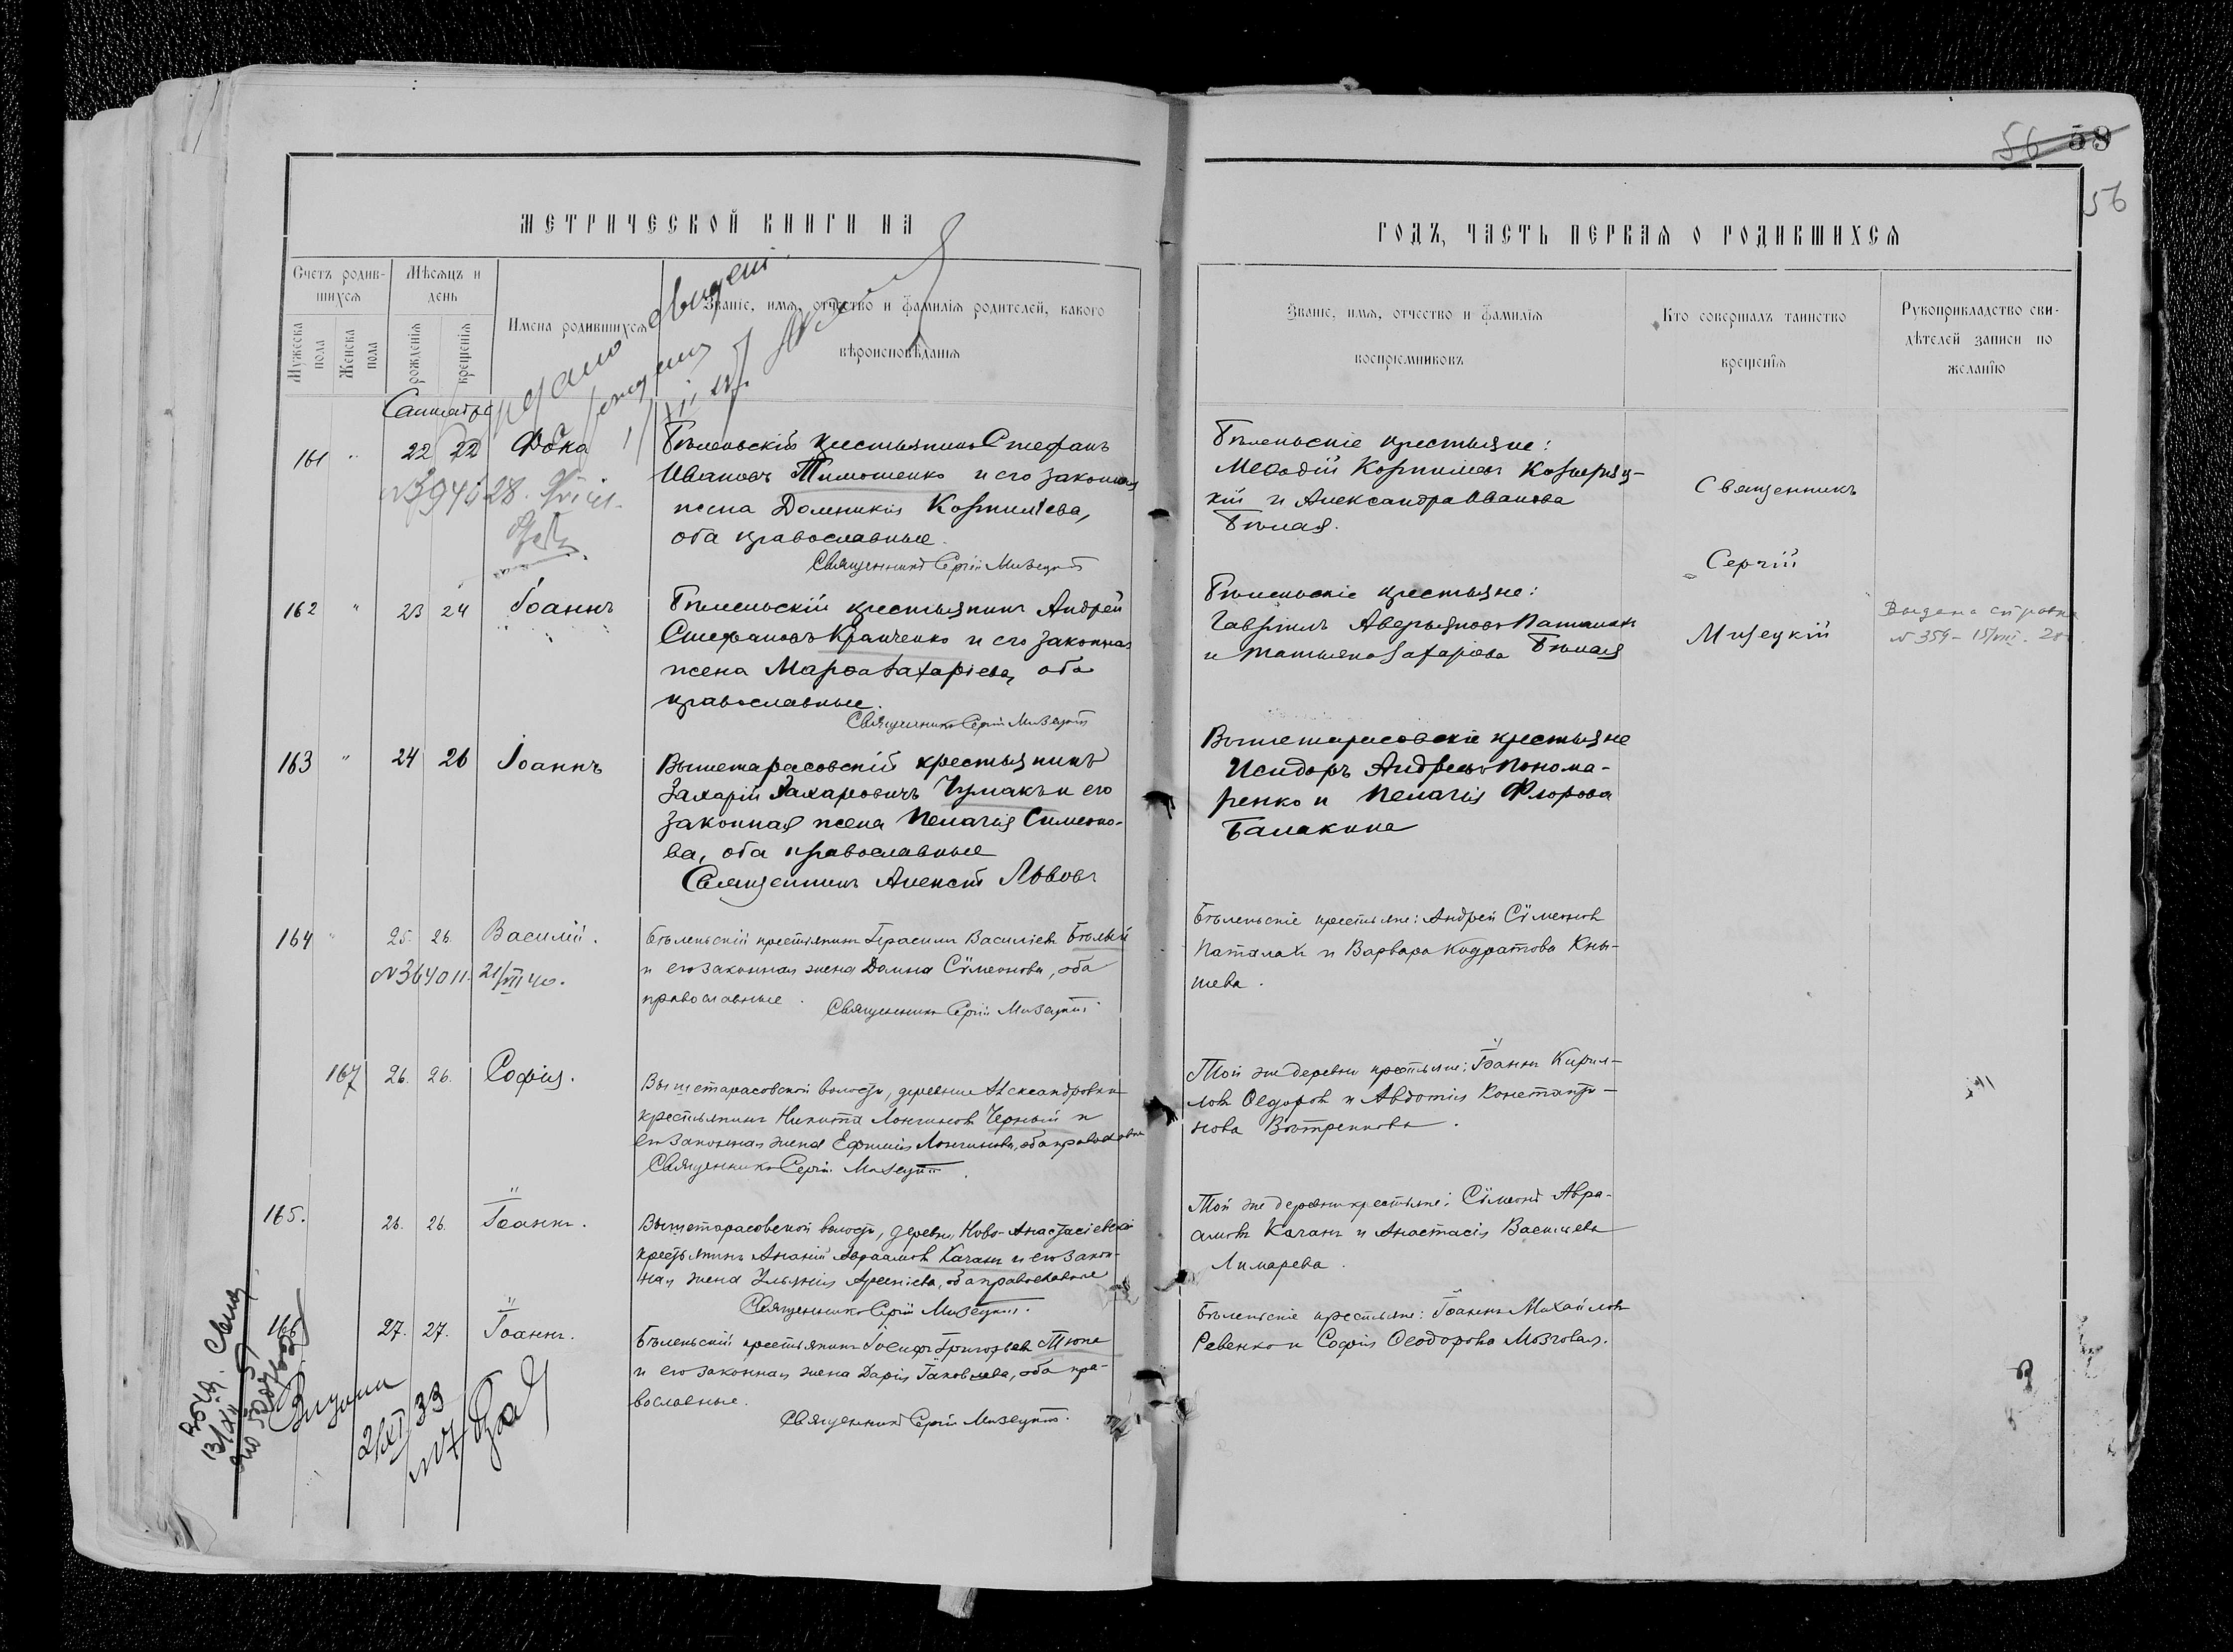 56 58
56
МЕТРИЧЕСКОЙ КНИГИ НА
ГОДЪ, ЧАСТЬ ПЕРВАЯ О РОДИВШИХСЯ
Счетъ родив-
шихся
Мужеска пола
Женска пола
Мѣсяцъ и
день
рожденія
крещенія
Имена родившихся
Званіе, имя, отчество и фамилія родителей, какого
вѣроисповѣданія
Званіе, имя, отчество и фамилія
воспріемниковъ
Кто совершалъ таинство
крещенія
Рукоприкладство сви-
дѣтелей записи по
желанію
161 " 22 22 Ѳока
Бѣленьскій крестьянинъ Стефанъ
Ивановъ Тимошенко и его законная
жена Домникія Корниліева,
оба православные.
Священникъ Сергій Мизецкій
Бѣленьскіе крестьяне:
Меѳодій Корниліевъ
кій и Александра Иванова
Бѣлая.
Священникъ
Сергій
Мизецкій
162 " 23 24 Іоаннъ
Бѣленьскій крестьянинъ Андрей
Стефановъ Кравченко и его законная
жена Марѳа Захаріева, оба
православные.
Священникъ Сергій Мизецкій
Бѣленьскіе крестьяне:
Гавріилъ Аверьяновъ Паталахъ
и Татьяна Захаріева Бѣлая
Выдана справка
N 359 - 15/VIII. 28
163 " 24 26 Іоаннъ
Вышетарасовскій крестьянинъ
Захарій Захаровичъ Чумакъ и его
законная жена Пелагія Симеоно-
ва, оба православные
Священникъ Алексій Львовъ
Вышетарасовскіе крестьяне
Исидоръ Андреевъ Понома-
ренко и Пелагія Флорова
Балакина
164 " 25. 26. Василій.
N364011. 21/VII 40.
Бѣленьскій крестьянинъ Герасимъ Василіевъ Бѣлый
и его законная жена Домна Сѵмеонова, оба
православные.
Священникъ Сергій Мизецкій.
Бѣленьскіе крестьяне: Андрей Сѵмеоновъ
Паталахъ и Варвара Кодратова Кны-
шева.
167 26. 26. Софія.
Вышетарасовской волости, деревни Александровки
крестьянинъ Никита Лонгиновъ Черный и
его законная жена Ефимія Лонгинова, оба православные
Священникъ Сергій Мизецкій.
Той же деревни крестьяне: Іоаннъ Кирил-
ловъ Ѳедоровъ и Авдотія Константи-
нова Вотренкова.
165. 26. 26. Іоаннъ.
Вышетарасовской волости, деревни Ново-Анастасіевки
крестьянинъ Ананій Авраамовъ Качанъ и его закон-
ная жена Ульянія Арсеніева, оба православные
Священникъ Сергій Мизецкій.
Той же деревни крестьяне: Сѵмеонъ Авра-
амовъ Качанъ и Анастасія Василіева
Лимарева.
166. 27. 27. Іоаннъ.
Бѣленьскій крестьянинъ Іосифъ Григорьевъ Тюпа
и его законная жена Дарія Іаковлева, оба пра-
вославные.
Священникъ Сергій Мизецкій.
Бѣленьскіе крестьяне: Іоаннъ Михайловъ
Ревенко и Софія Ѳеодорова Мозговая.
2/XI 33